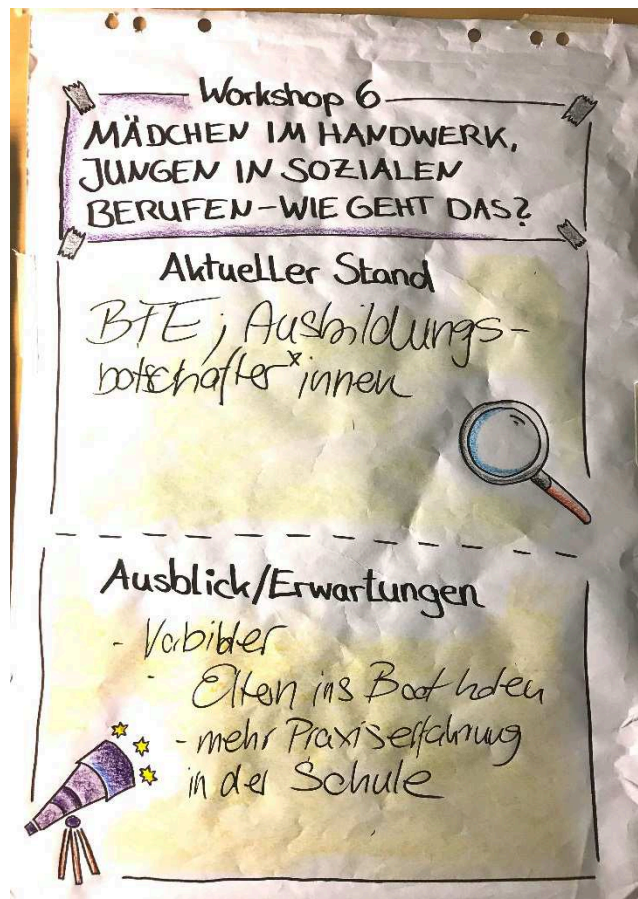 Workshop 6
MÄDCHEN IM HANDWERK,
JUNGEN IN SOZIALEN
BERUFEN-WIE GEHT DAS?
Aktueller Stand
BTE, Ausbildungs-
botschafter*innen
Ausblick/Erwartungen
- Vorbilder
- Eltern ins Boot holen
- mehr Praxiserfahrung
in der Schule